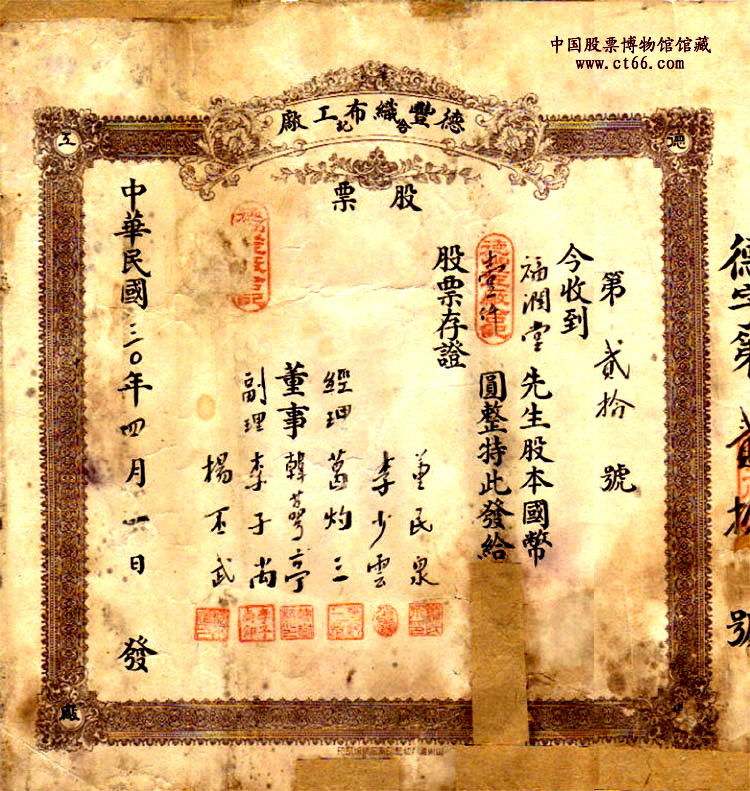 中国股票博物馆馆藏
www.ct66.com
德豐織布工廠
合記
股票
德
工
廠
第貳拾號
今收到
福潤堂先生股本國幣
壹仟圓整特此發給
股票存證
董民泉
李少雲
經理葛灼三
董事韓 亭
副理李子尚
楊 武
中華民國三〇年四月一日發
德字第貳拾號